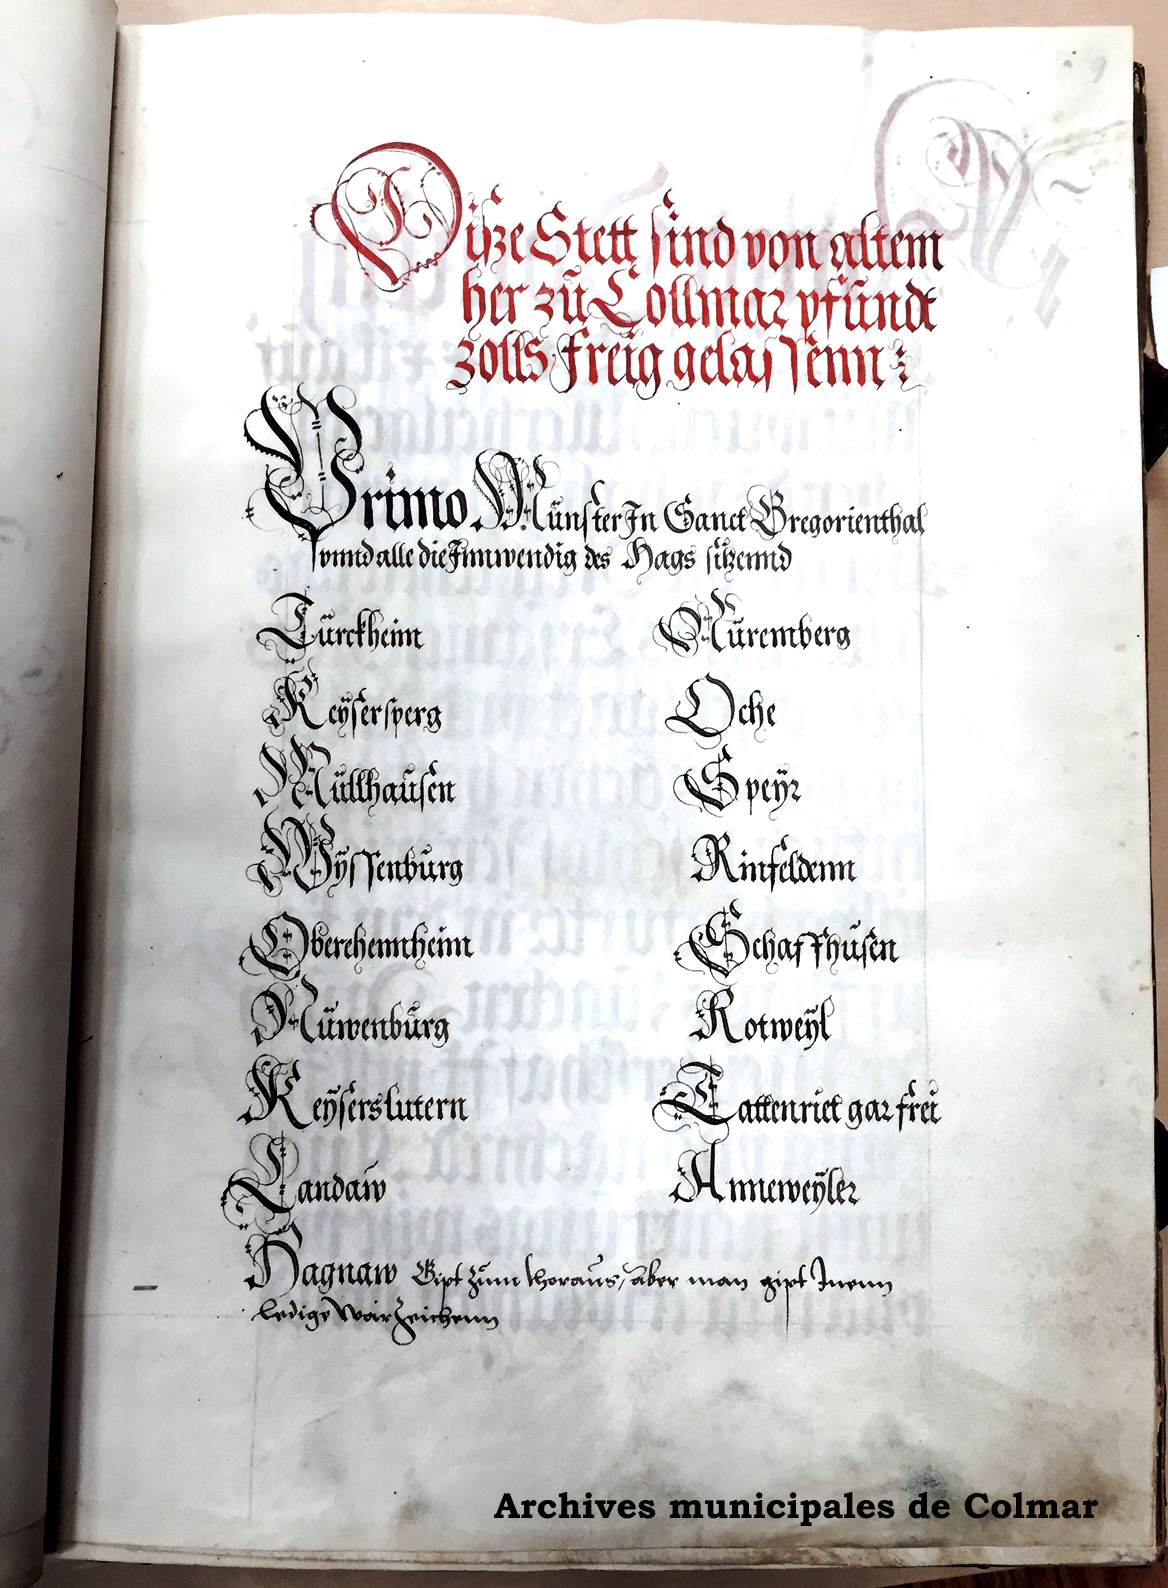 9
Disze Stett sind von altem
her zů Collmar pfundt
zolls freig gelassenn
Primo Münster In Sanct Gregorienthal
vnnd alle die Innwendig des Hags sitzennd
Türckheim
Keÿsersperg
Müllhausen
Wÿssenburg
Oberehennheim
Nüwenburg
Keÿserslutern
Landaw
Nüremberg
Oche
Speÿr
Rinfeldenn
Schaffhusen
Rotweÿl
Tattenriet gar frei
Anneweÿler
Hagnaw Gipt zum voraus, aber man gipt Inenn
ledige warzeichenn
Archives municipales de Colmar